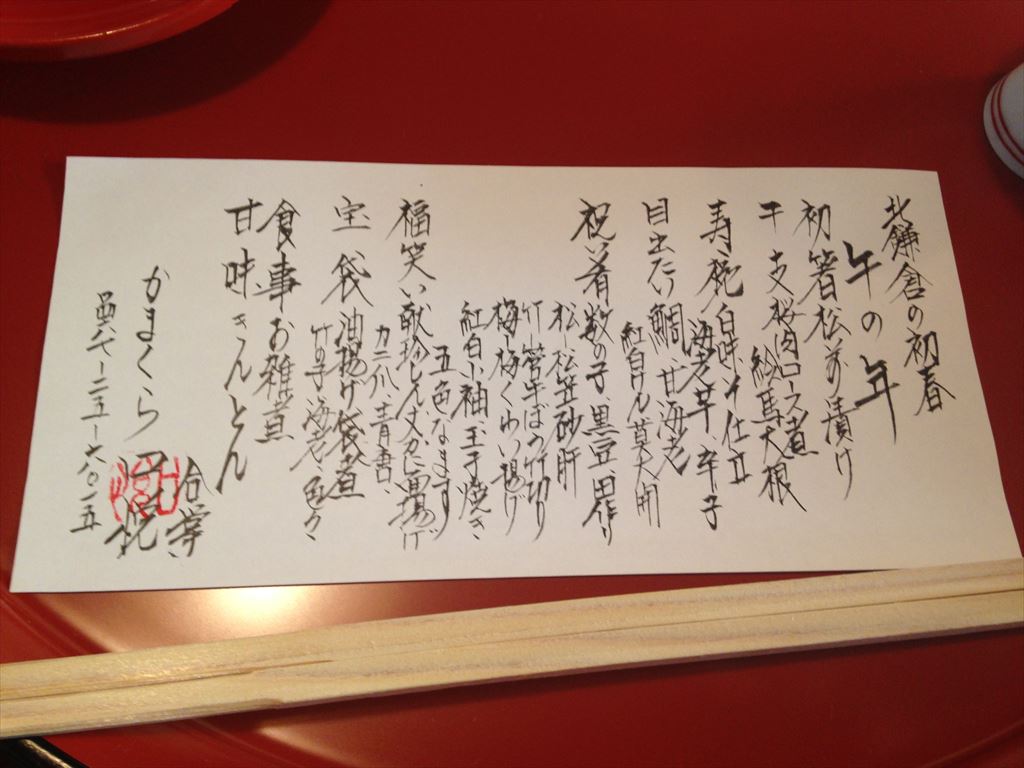 北鎌倉の初春
午の年
初箸 松前漬け
干支 桜肉コース煮
絵馬大根
寿椀 白味ソ仕立
海老芋、辛子
目出たい 鯛、甘海老
紅白けん、莫大開
祝肴 数の子、黒豆、田作り
松 松笠砂肝
竹 菅牛ぼう竹切り
梅 梅くわい揚げ
紅白小袖、玉子焼き
五色なます
福笑い 献珍しん丈カピ皿揚げ
カニ爪、青唐
宝袋 油揚げ袋煮
竹の子、海老、色々
食事 お雑煮
甘味 きんとん
かまくら
四六七ー二五ー六八〇一五